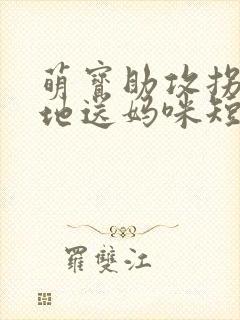 萌寶助攻拐
地送媽咪短
羅雙江